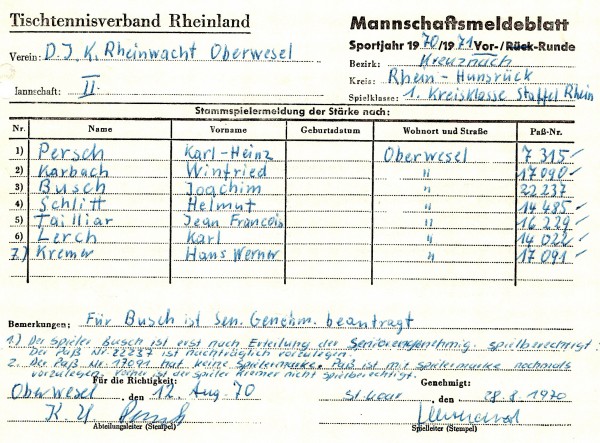 Tischtennisverband Rheinland
Mannschaftsmeldeblatt
Sportjahr 1970/1971 Vor-/Rück-Runde
Verein: D.J.K. Rheinwacht Oberwesel
Bezirk: Kreuznach
Kreis: Rhein-Hunsrück
Iannschaft: II.
Spielklasse: 1. Kreisklasse Staffel Rhein
Stammspielermeldung der Stärke nach:
Nr. Name Vorname Geburtsdatum Wohnort und Straße Paß-Nr.
1) Persch Karl-Heinz Oberwesel 7 315 ✓
2) Karbach Winfried " 17090 ✓
3) Busch Joachim " 22237
4) Schlitt Helmut " 14 485 ✓
5) Tailliar Jean Francois " 16 229 ✓
6) Lerch Karl " 14 022 ✓
7.) Kremer Hans Werner " 17 091 ✓
Bemerkungen: Für Busch ist Sen. Genehm. beantragt
1.) Der Spieler Busch ist erst nach Erteilung der Seniorengenehmig. spielberechtigt.
Der Paß Nr. 22237 ist nachträglich vorzulegen.
2. Der Paß Nr. 17091 hat keine Spielermarke. Paß ist mit Spielermarke nochmals
vorzulegen. Vorher ist der Spieler Kremer nicht spielberechtigt.
Für die Richtigkeit: Genehmigt:
Oberwesel, den 12 Aug. 70 , den 28.8.1970
Abteilungsleiter (Stempel) Spielleiter (Stempel)